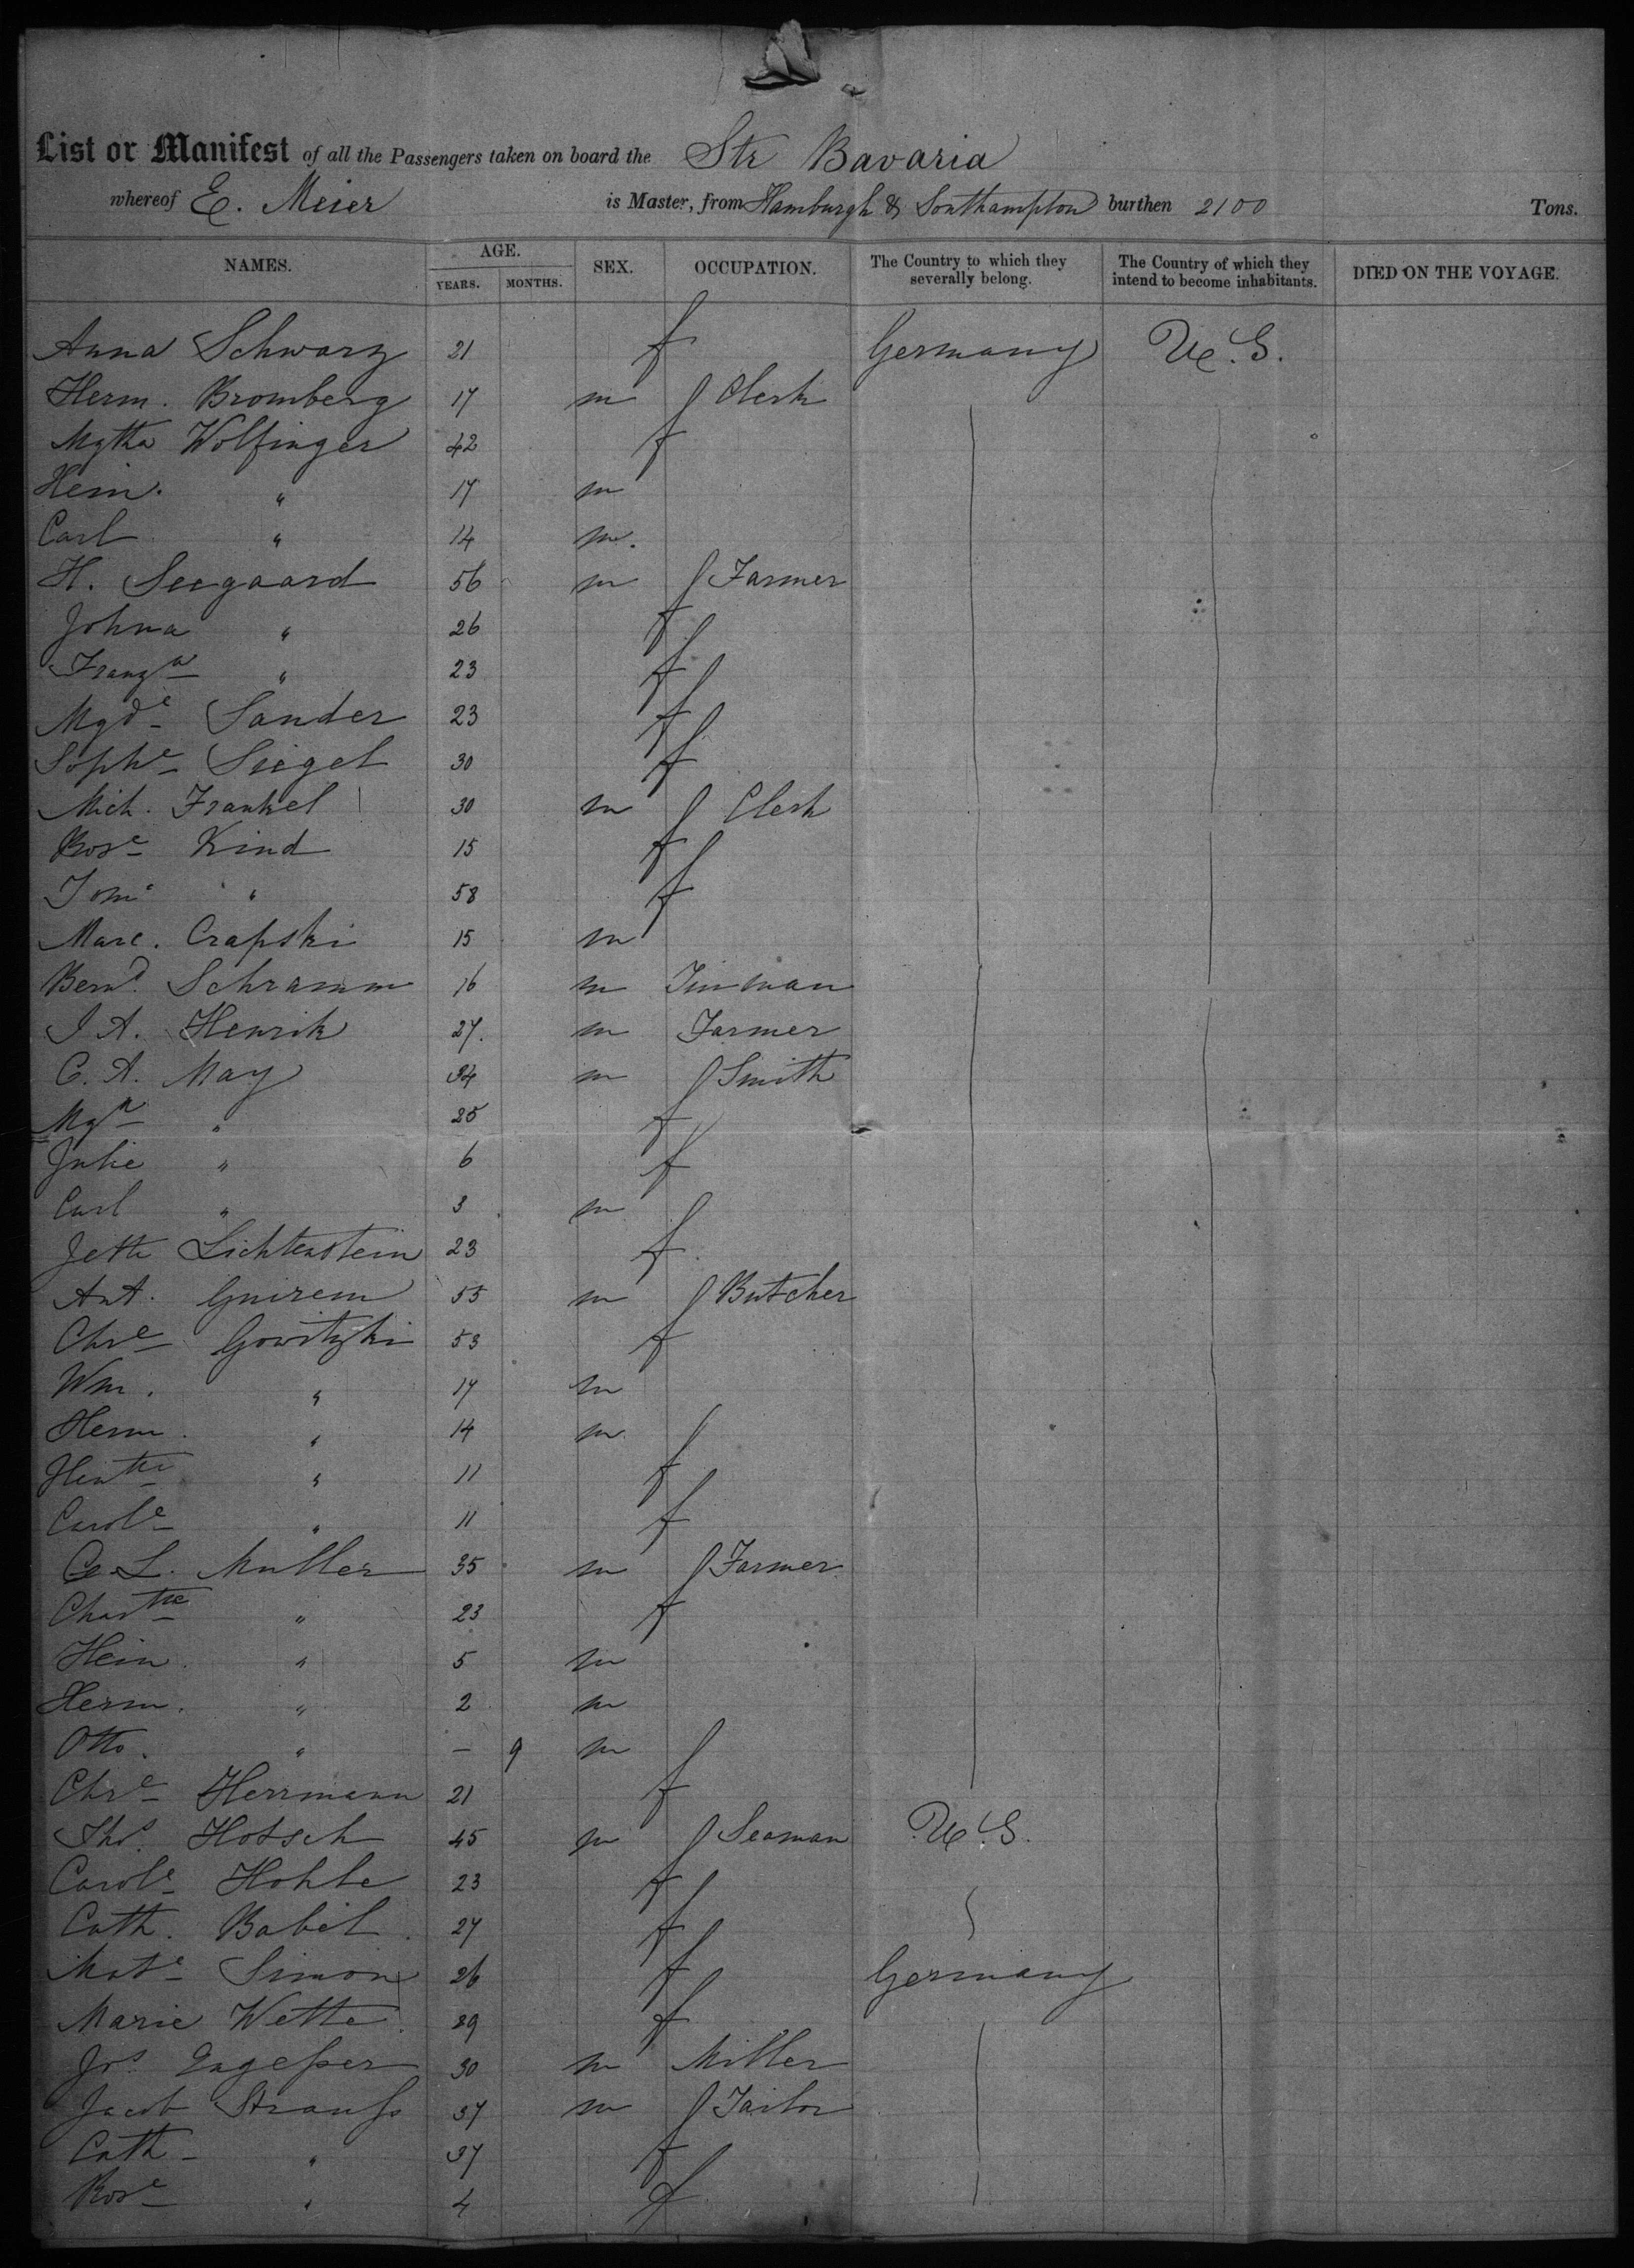 List or Manifest of all the Passengers taken on board the Str Bavaria
whereof E. Meier is Master, from Hamburgh & Southampton burthen 2100 Tons.
NAMES. AGE. SEX. OCCUPATION. The Country to which they severally belong. The Country of which they intend to become inhabitants. DIED ON THE VOYAGE.
YEARS. MONTHS.
Anna Schwarz 21 f Germany U.S.
Herm. Bromberg 17 m Clerk
Mgtha Wolfinger 42 f
Hein. " 17 m
Carl " 14 m.
H. Seegaard 56 m Farmer
Johna " 26 f
Franza " 23 f
Mgde Sander 23 f
Sophe Siegel 30 f
Mich. Frankel 30 m Clerk
Rose Kind 15 f
" 58 f
Marc. Crapski 15 m
Bernd. Schramm 16 m Tinman
I A. Henrik 27. m Farmer
C. A. May 34 m Smith
Mga " 25 f
Julie " 6 f
Carl " 3 m
Jette Lichtenstein 23 f
Ant. Gnirem 55 m Butcher
Chre Gowitzki 53 f
Wm. " 17 m
Herm. " 14 m
" 11 f
Carole " 11 f
C. L. Muller 35 m Farmer
" 23 f
Hein. " 5 m
Herm. " 2 m
Otto. " – 9 m
Chre Herrmann 21 f
Ths. Hotsch 45 m Seaman U.S.
Carole Hohle 23 f
Cath. Babel 27 f
Mate Simon 26 f Germany
Marie Wette 29 f
Jos Engesser 30 m Miller
Jacob Strauss 37 m Tailor
Cath " 37 f
Rose " 4 f